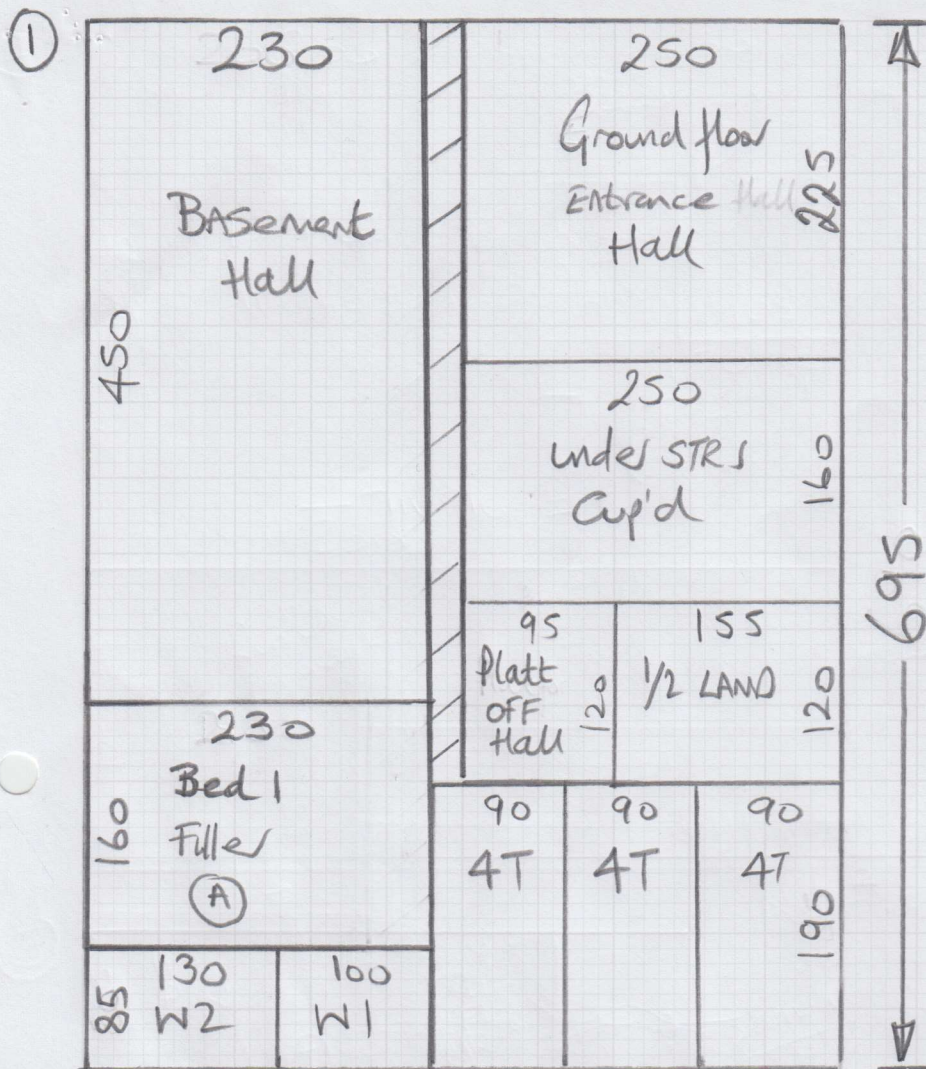 1
230
BASement
Hall
450
250
Ground floor
Entrance Hall
Hall
225
250
under STRS
Cup'd
160
695
95
Platt
off
Hall
120
155
1/2 LAND
120
230
Bed 1
Filler
A
160
90
4T
90
4T
90
4T
190
130
W2
85
100
W1